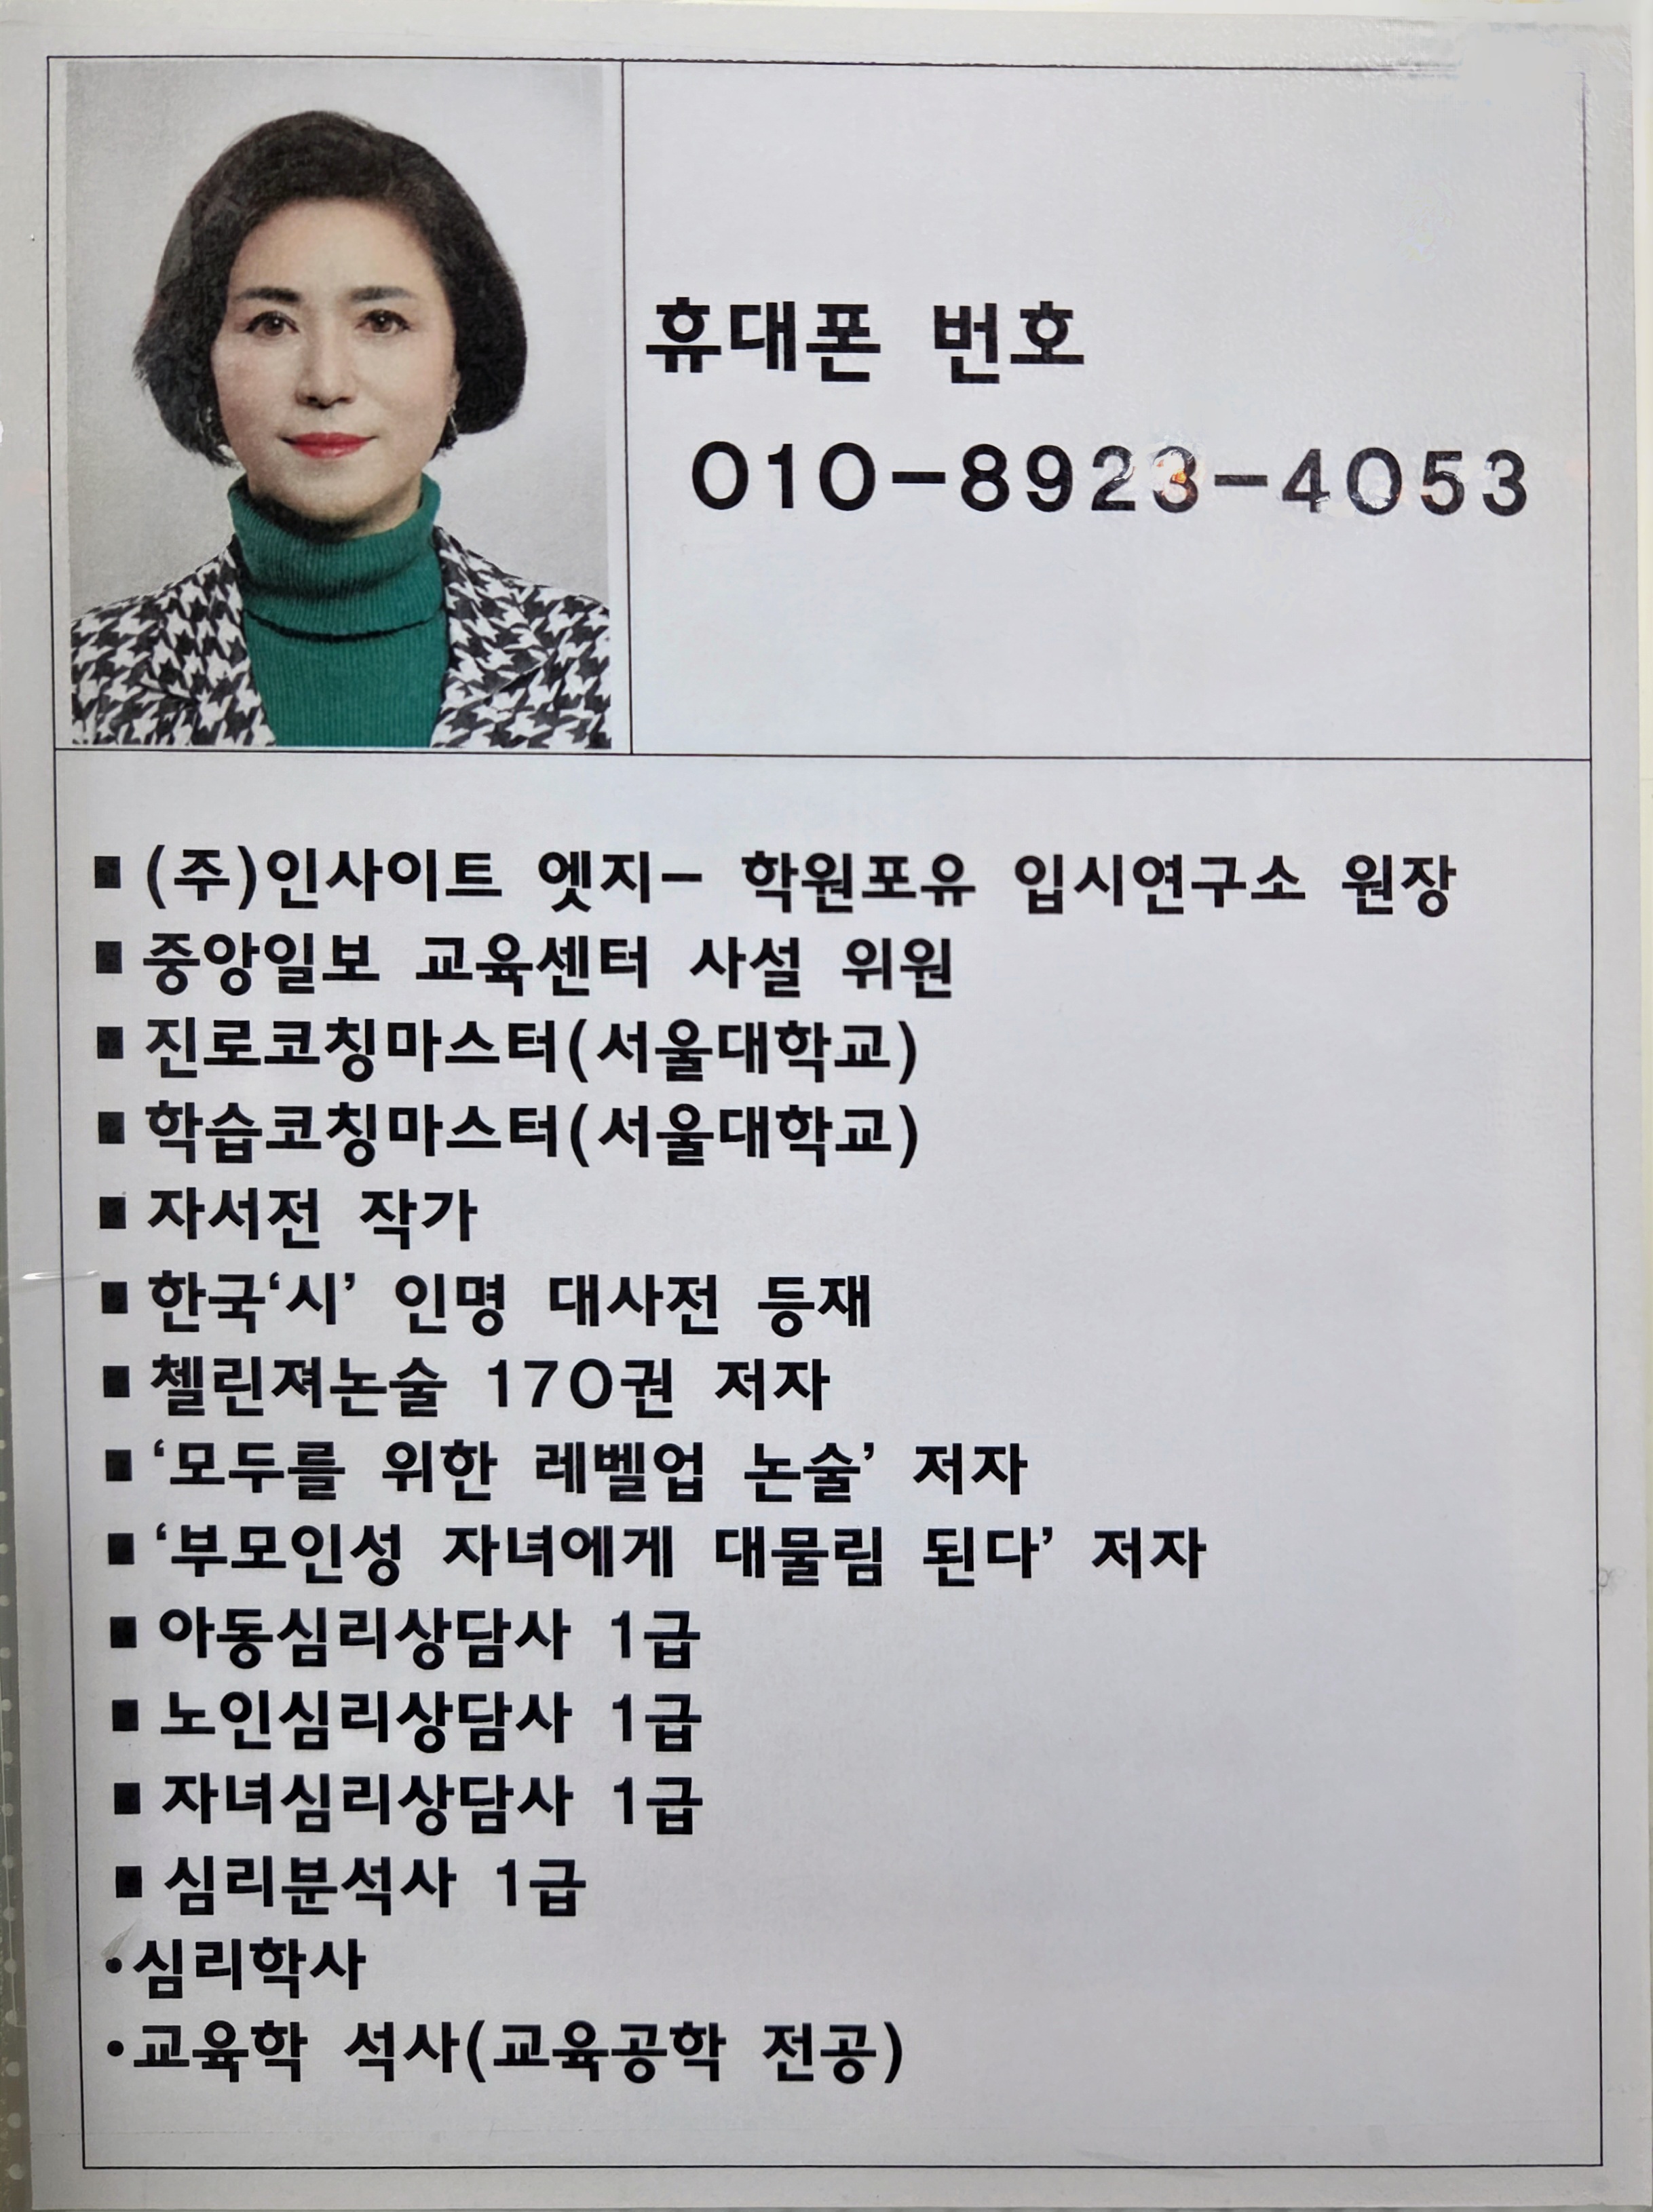 휴대폰 번호
010-8923-4053
■ (주)인사이트 엣지- 학원포유 입시연구소 원장
■ 중앙일보 교육센터 사설 위원
■ 진로코칭마스터(서울대학교)
■ 학습코칭마스터(서울대학교)
■ 자서전 작가
■ 한국‘시’ 인명 대사전 등재
■ 첼린져논술 170권 저자
■ ‘모두를 위한 레벨업 논술’ 저자
■ ‘부모인성 자녀에게 대물림 된다’ 저자
■ 아동심리상담사 1급
■ 노인심리상담사 1급
■ 자녀심리상담사 1급
■ 심리분석사 1급
•심리학사
•교육학 석사(교육공학 전공)